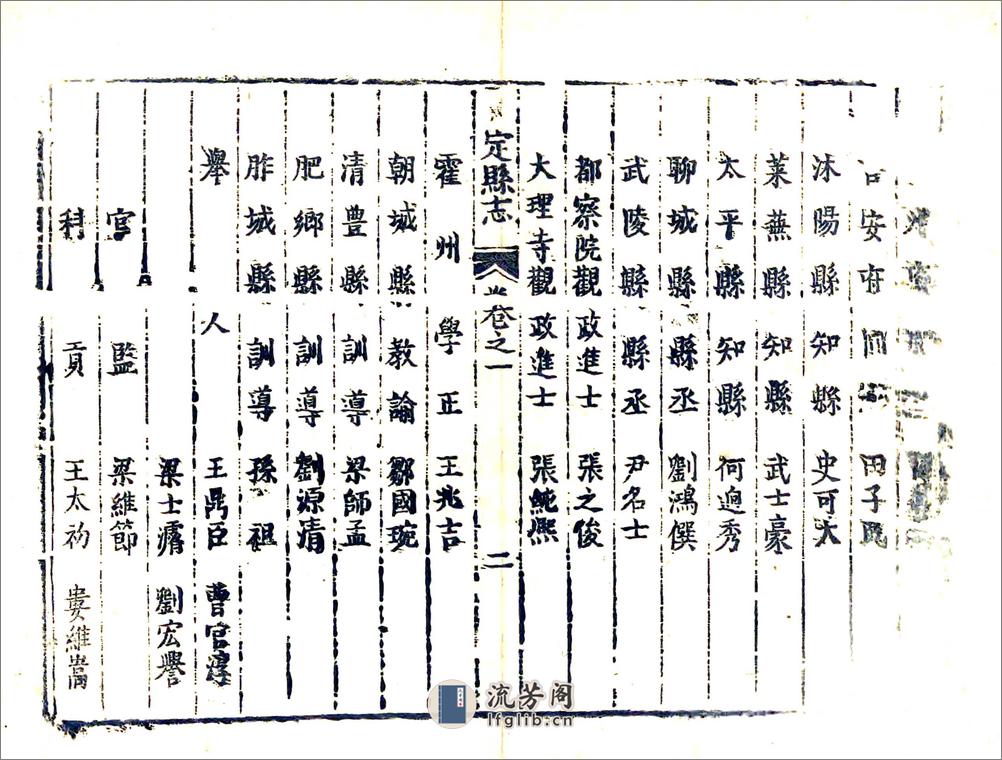 吉安府同知 田子
沭陽縣知縣 史可大
萊蕪知縣 武士豪
太平縣知縣 何迥秀
聊城縣縣丞 劉鴻僎
武陵縣縣丞 尹名士
都察院觀政進士 張之俊
大理寺觀政進士 張純熈
定縣志 卷之一 二
霍州學正 王兆吉
朝城縣教諭 鄒國琬
清豊縣訓導 梁師孟
肥鄉縣訓導 劉源清
胙城縣訓導 孫祖
舉人 王鼎臣 曹官淳
梁士 劉宏譽
官監 梁維節
科貢 王太礽 婁維嵩
流芳阁
lfglib.cn